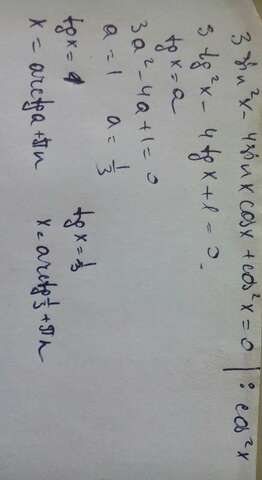 3 sin²x - 4 sin x cos x + cos²x = 0 | : cos²x
3 tg²x - 4 tg x + 1 = 0.
tg x = a
3a² - 4a + 1 = 0
a = 1 a = 1/3
tg x = 1 tg x = 1/3
x = arctg a + πn x = arctg 1/3 + πn